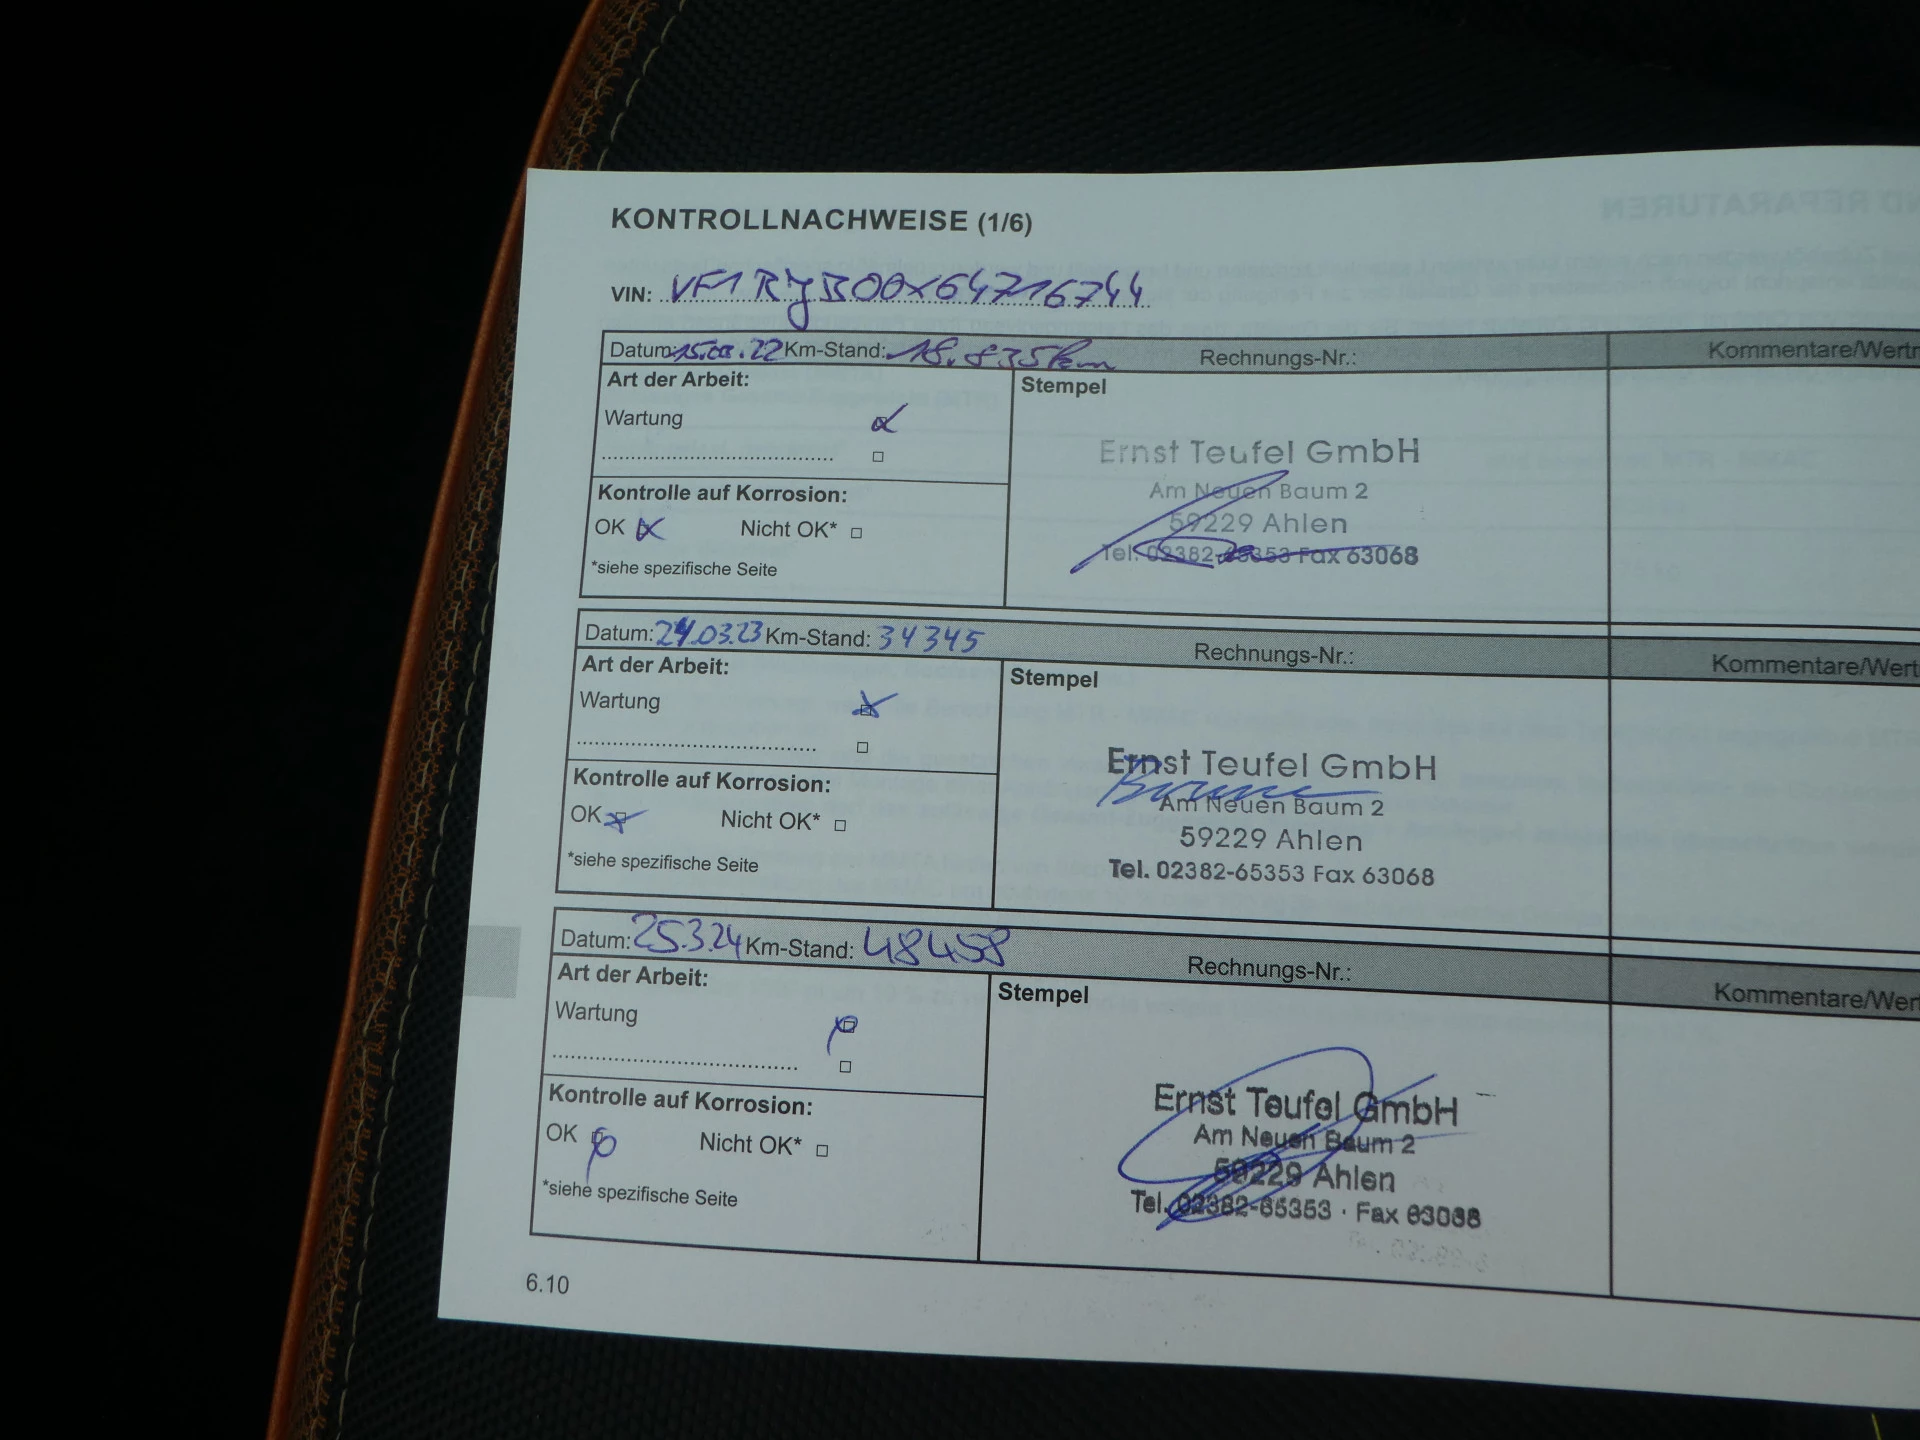 KONTROLLNACHWEISE (1/6)
VIN: VF1RJB00X64716744
Datum: 15.03.22 Km-Stand: 18.835km Rechnungs-Nr.: Kommentare/Wertr
Art der Arbeit: Stempel
Wartung
Ernst Teufel GmbH
Am Neuen Baum 2
Kontrolle auf Korrosion:
59229 Ahlen
OK Nicht OK*
Tel. 02382-65353 Fax 63068
*siehe spezifische Seite
Datum: 24.03.23 Km-Stand: 34345 Rechnungs-Nr.: Kommentare/Wert
Art der Arbeit: Stempel
Wartung
Ernst Teufel GmbH
Kontrolle auf Korrosion:
Am Neuen Baum 2
OK Nicht OK*
59229 Ahlen
*siehe spezifische Seite
Tel. 02382-65353 Fax 63068
Datum: 25.3.24 Km-Stand: 48458 Rechnungs-Nr.: Kommentare/Wert
Art der Arbeit: Stempel
Wartung
Kontrolle auf Korrosion:
Ernst Teufel GmbH
Am Neuen Baum 2
OK Nicht OK*
59229 Ahlen
*siehe spezifische Seite
Tel. 02382-65353 · Fax 63068
6.10